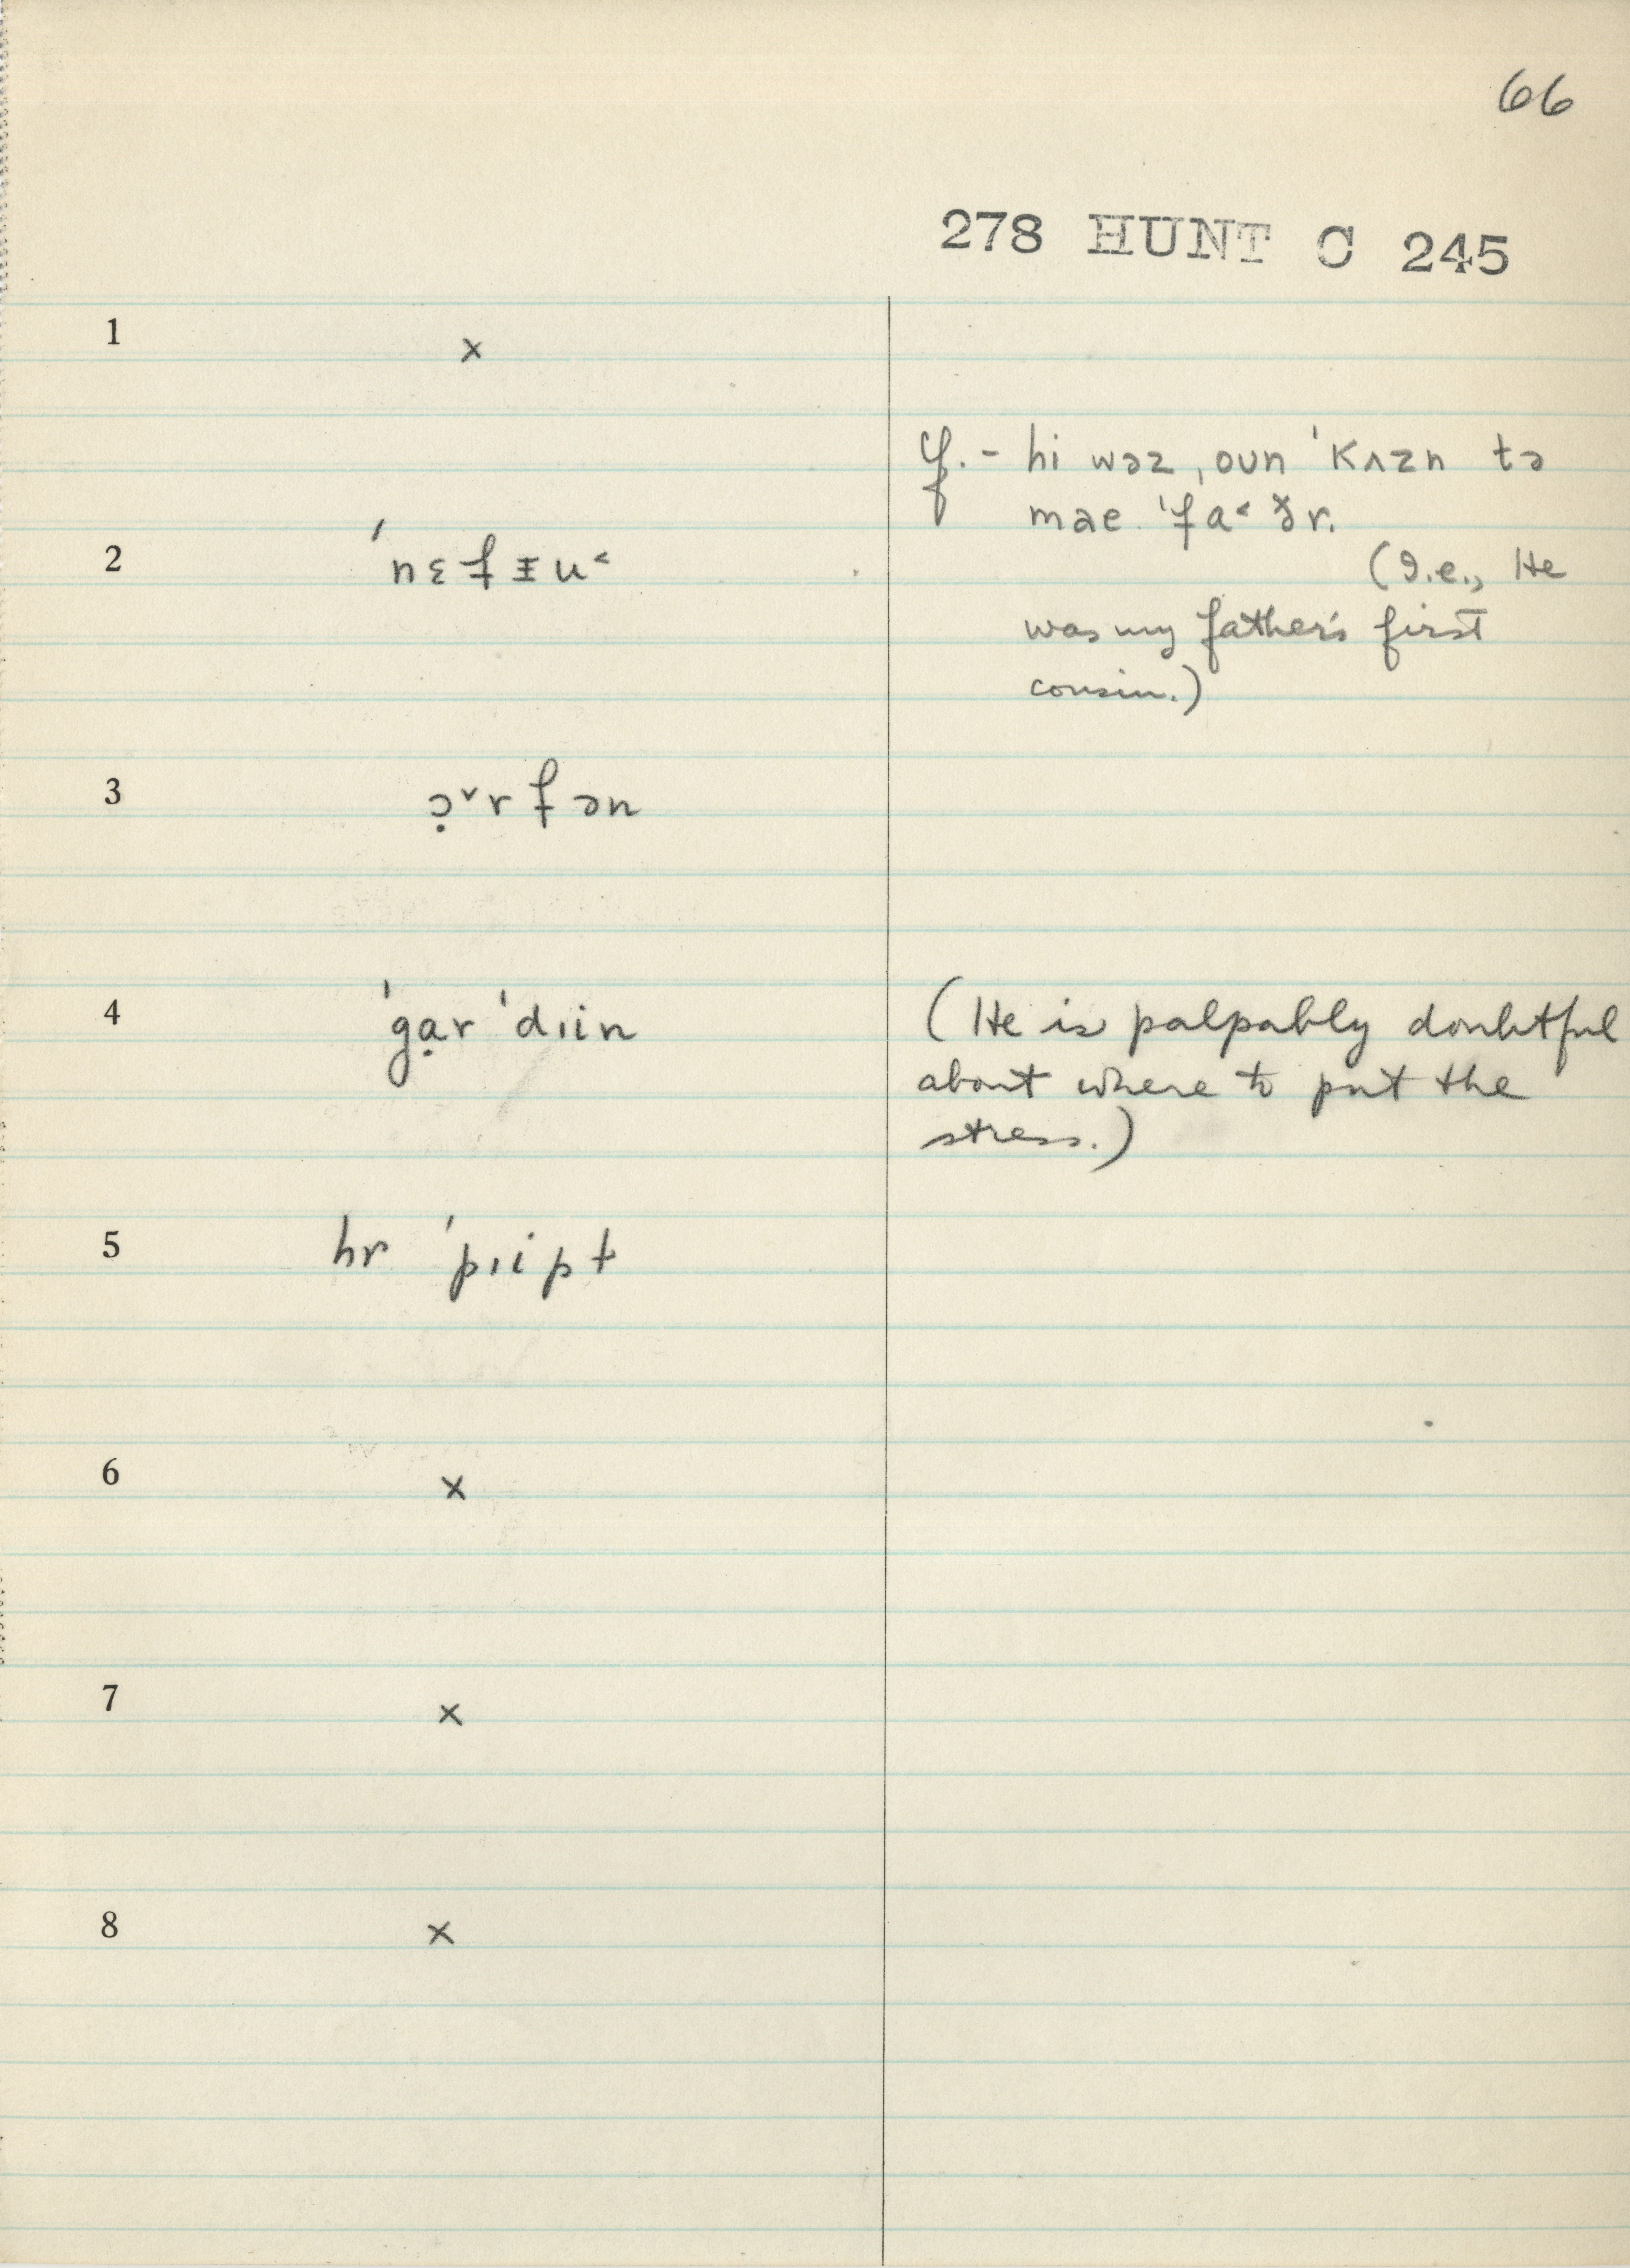 66
278 HUNT C 245
1 ×
cf. - hi wəz ˌoʊn ˈkʌzn tə
mae ˈfa˂ðr.
2 ˈnɛfᵻu˂
(I.e., He
was my father's first
cousin.)
3 ɔ̣˅rfən
4 ˈgɑ̣r ˈdɪin (He is palpably doubtful
about where to put the
stress.)
5 hr ˈpɪipt
6 ×
7 ×
8 ×